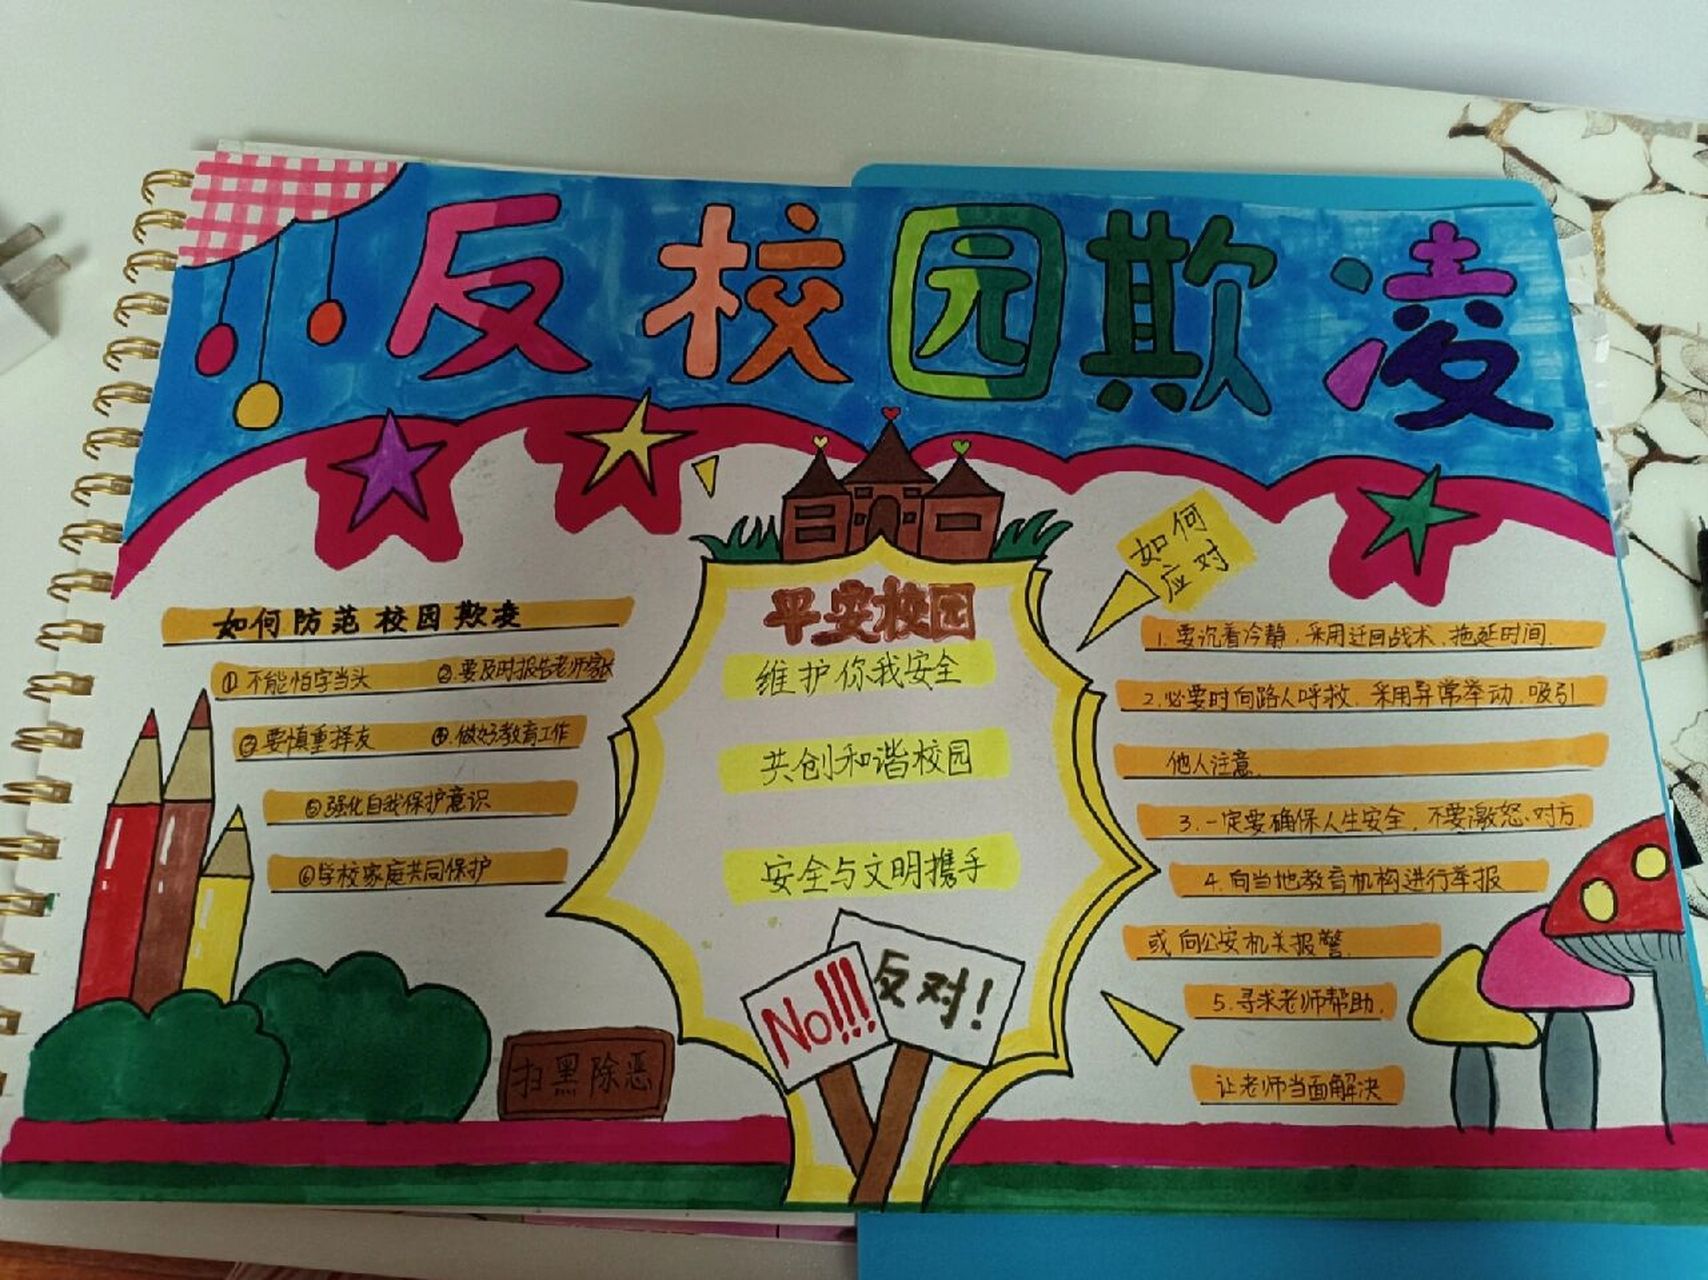 反校园欺凌
如何防范校园欺凌
① 不能怕字当头 ②.要及时报告老师家长
③要慎重择友 ④.做好教育工作
⑤强化自我保护意识
⑥学校家庭共同保护
扫黑除恶
平安校园
维护你我安全
共创和谐校园
安全与文明携手
No!!!
反对!
如何
应对
1.要沉着冷静,采用迂回战术、拖延时间.
2.必要时向路人呼救.采用异常举动.吸引
他人注意.
3.一定要确保人生安全,不要激怒、对方.
4.向当地教育机构进行举报
或向公安机关报警.
5.寻求老师帮助.
让老师当面解决